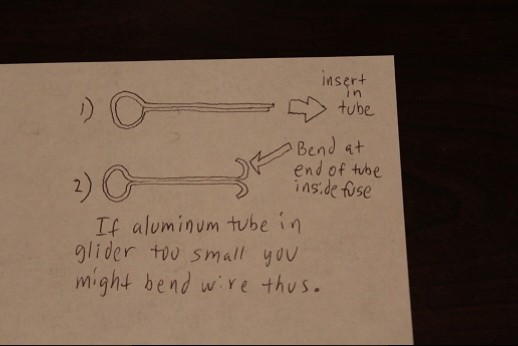 1)
insert
in
tube
2)
Bend at
end of tube
inside fuse
If aluminum tube in
glider too small you
might bend wire thus.